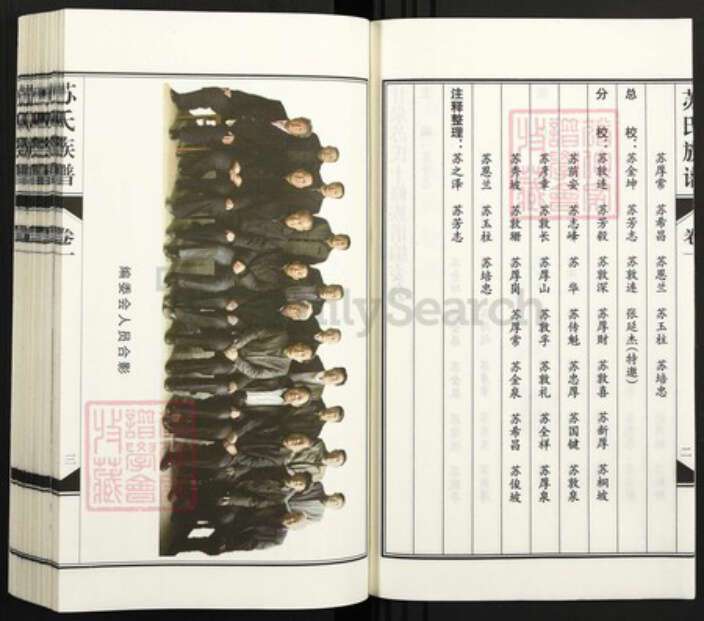 苏氏族谱 卷一 二
苏厚常 苏希昌 苏恩兰 苏玉柱 苏培忠
总校：苏金坤 苏芳志 苏敦连 张延杰(特邀)
分校：苏敦述 苏芳毅 苏敦深 苏厚财 苏敦喜 苏新厚 苏桐坡
苏荫安 苏志峰 苏华 苏传魁 苏忠厚 苏国键 苏敦泉
苏彦章 苏敦长 苏厚山 苏敦孚 苏敦礼 苏全祥 苏厚泉
苏秀坡 苏敦珊 苏厚岗 苏厚常 苏金泉 苏希昌 苏俊坡
苏恩兰 苏玉柱 苏培忠
注释整理：苏之泽 苏芳志
编委会人员合影
苏氏族谱 卷一 三